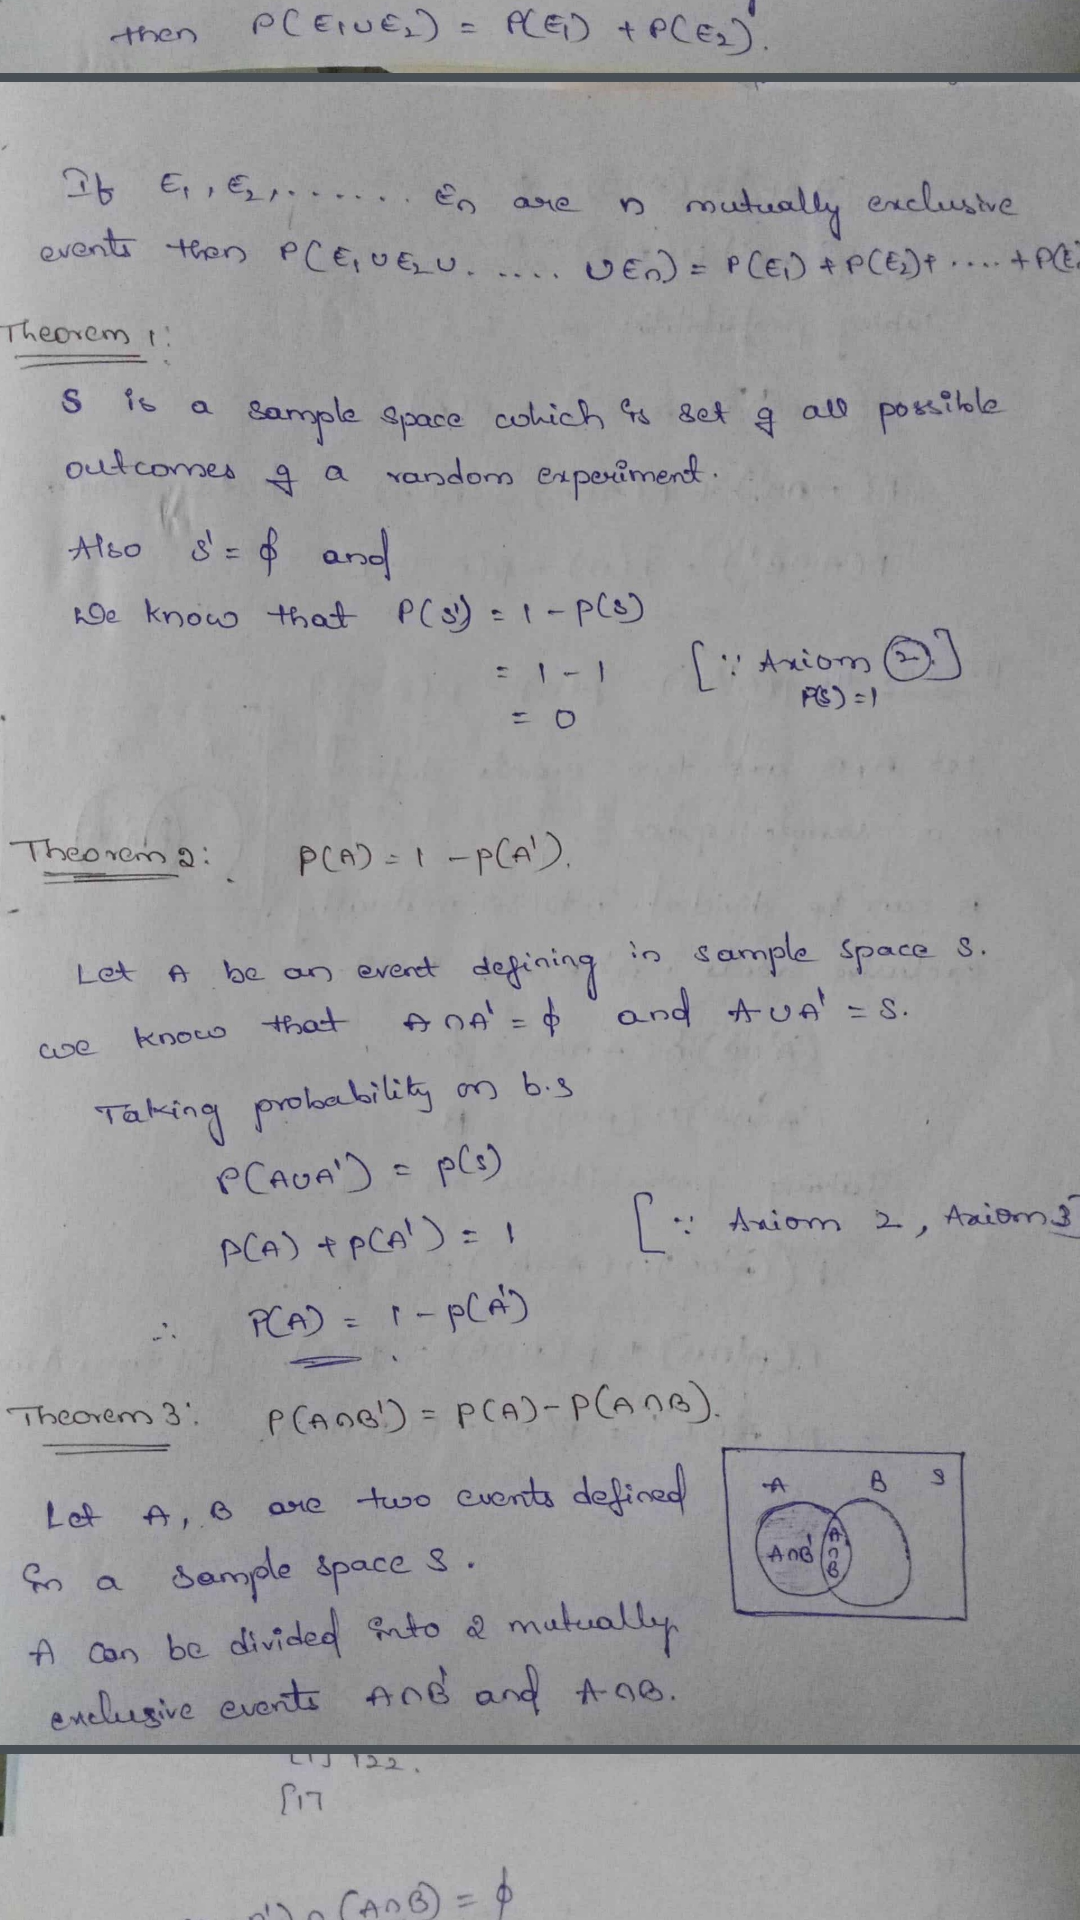 then P(E₁∪E₂) = P(E₁) + P(E₂).
If E₁, E₂, ....... Eₙ are n mutually exclusive
events then P(E₁∪E₂∪...... ∪Eₙ) = P(E₁) + P(E₂) + .... + P(E
Theorem 1:
S is a sample space which is set of all possible
outcomes of a random experiment.
Also S' = ϕ and
We know that P(S') = 1 - P(S)
= 1 - 1 [∵ Axiom ②.]
P(S) = 1
= 0
Theorem 2: P(A) = 1 - P(A').
Let A be an event defining in sample space S.
we know that A∩A' = ϕ and A∪A' = S.
Taking probability on b.s
P(A∪A') = P(S)
P(A) + P(A') = 1 [∵ Axiom 2, Axiom 3]
∴ P(A) = 1 - P(A')
Theorem 3: P(A∩B') = P(A) - P(A∩B).
A B S
A∩B' A∩B
Let A, B are two events defined
in a sample space S.
A can be divided into 2 mutually
exclusive events A∩B' and A∩B.
122.
∩(A∩B) = ϕ